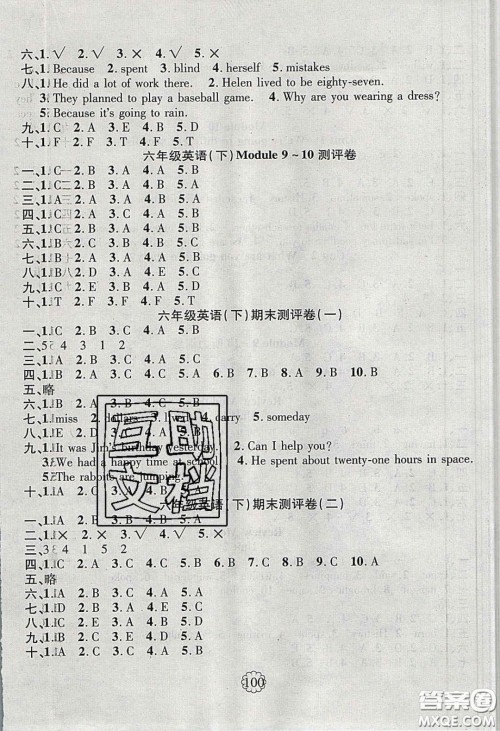 六、1.√ 2.√ 3.× 4.√ 5.×
七、1.Because 2.spent 3.blind 4.herself 5.mistakes
八、1.He did a lot of work there. 2.Helen lived to be eighty-seven.
3.They planned to play a baseball game. 4.Why are you wearing a dress?
5.Because it's going to rain.
九、1.C 2.A 3.E 4.B 5.D
十、1.F 2.F 3.T 4.F 5.T
六年级英语(下)Module 9~10 测评卷
一、1.C 2.B 3.A 4.A 5.C
二、1.C 2.B 3.A 4.B 5.A
三、1.A 2.A 3.C 4.A 5.B
四、1.C 2.A 3.A 4.C 5.B
五、
六、1.C 2.A 3.B 4.C 5.A
七、1.A 2.B 3.B 4.A 5.B
八、1.B 2.B 3.C 4.A 5.B
九、1.C 2.D 3.E 4.B 5.A
十、1.T 2.F 3.F 4.F 5.T
六年级英语(下)期末测评卷(一)
一、1.C 2.B 3.C 4.A 5.A
二、5 4 3 1 2
三、1.A 2.A 3.B 4.A 5.B
四、1.A 2.C 3.A 4.C 5.B 6.A 7.B 8.A 9.C 10.A
五、略
六、1.C 5.A
七、1.miss 2.dollars 4.carry 5.someday
八、
九、1.It was Jim's birthday yesterday. 2.Can I help you?
3.We had a happy time at school. 4.He spent about twenty-one hours in space.
5.The rabbits are jumping.
十、1.A 5.A
六年级英语(下)期末测评卷(二)
一、1.C 2.B 3.C 4.B 5.C
二、1.A 2.A 3.A 4.B 5.A
三、3 4 1 5 2
四、1.C 2.A 3.C 4.A 5.B 6.C 7.B 8.A 9.B 10.B
五、略
六、1.A 2.C 3.A 4.B 5.C
七、1.D 2.E 3.A 4.B 5.C
八、1.E 2.B 3.C 4.A 5.D
九、1.D 2.B 3.E 4.C 5.A
十、1.A 2.A 3.C 4.B 5.A
100
互助文档
答案圈
MXQE.COM